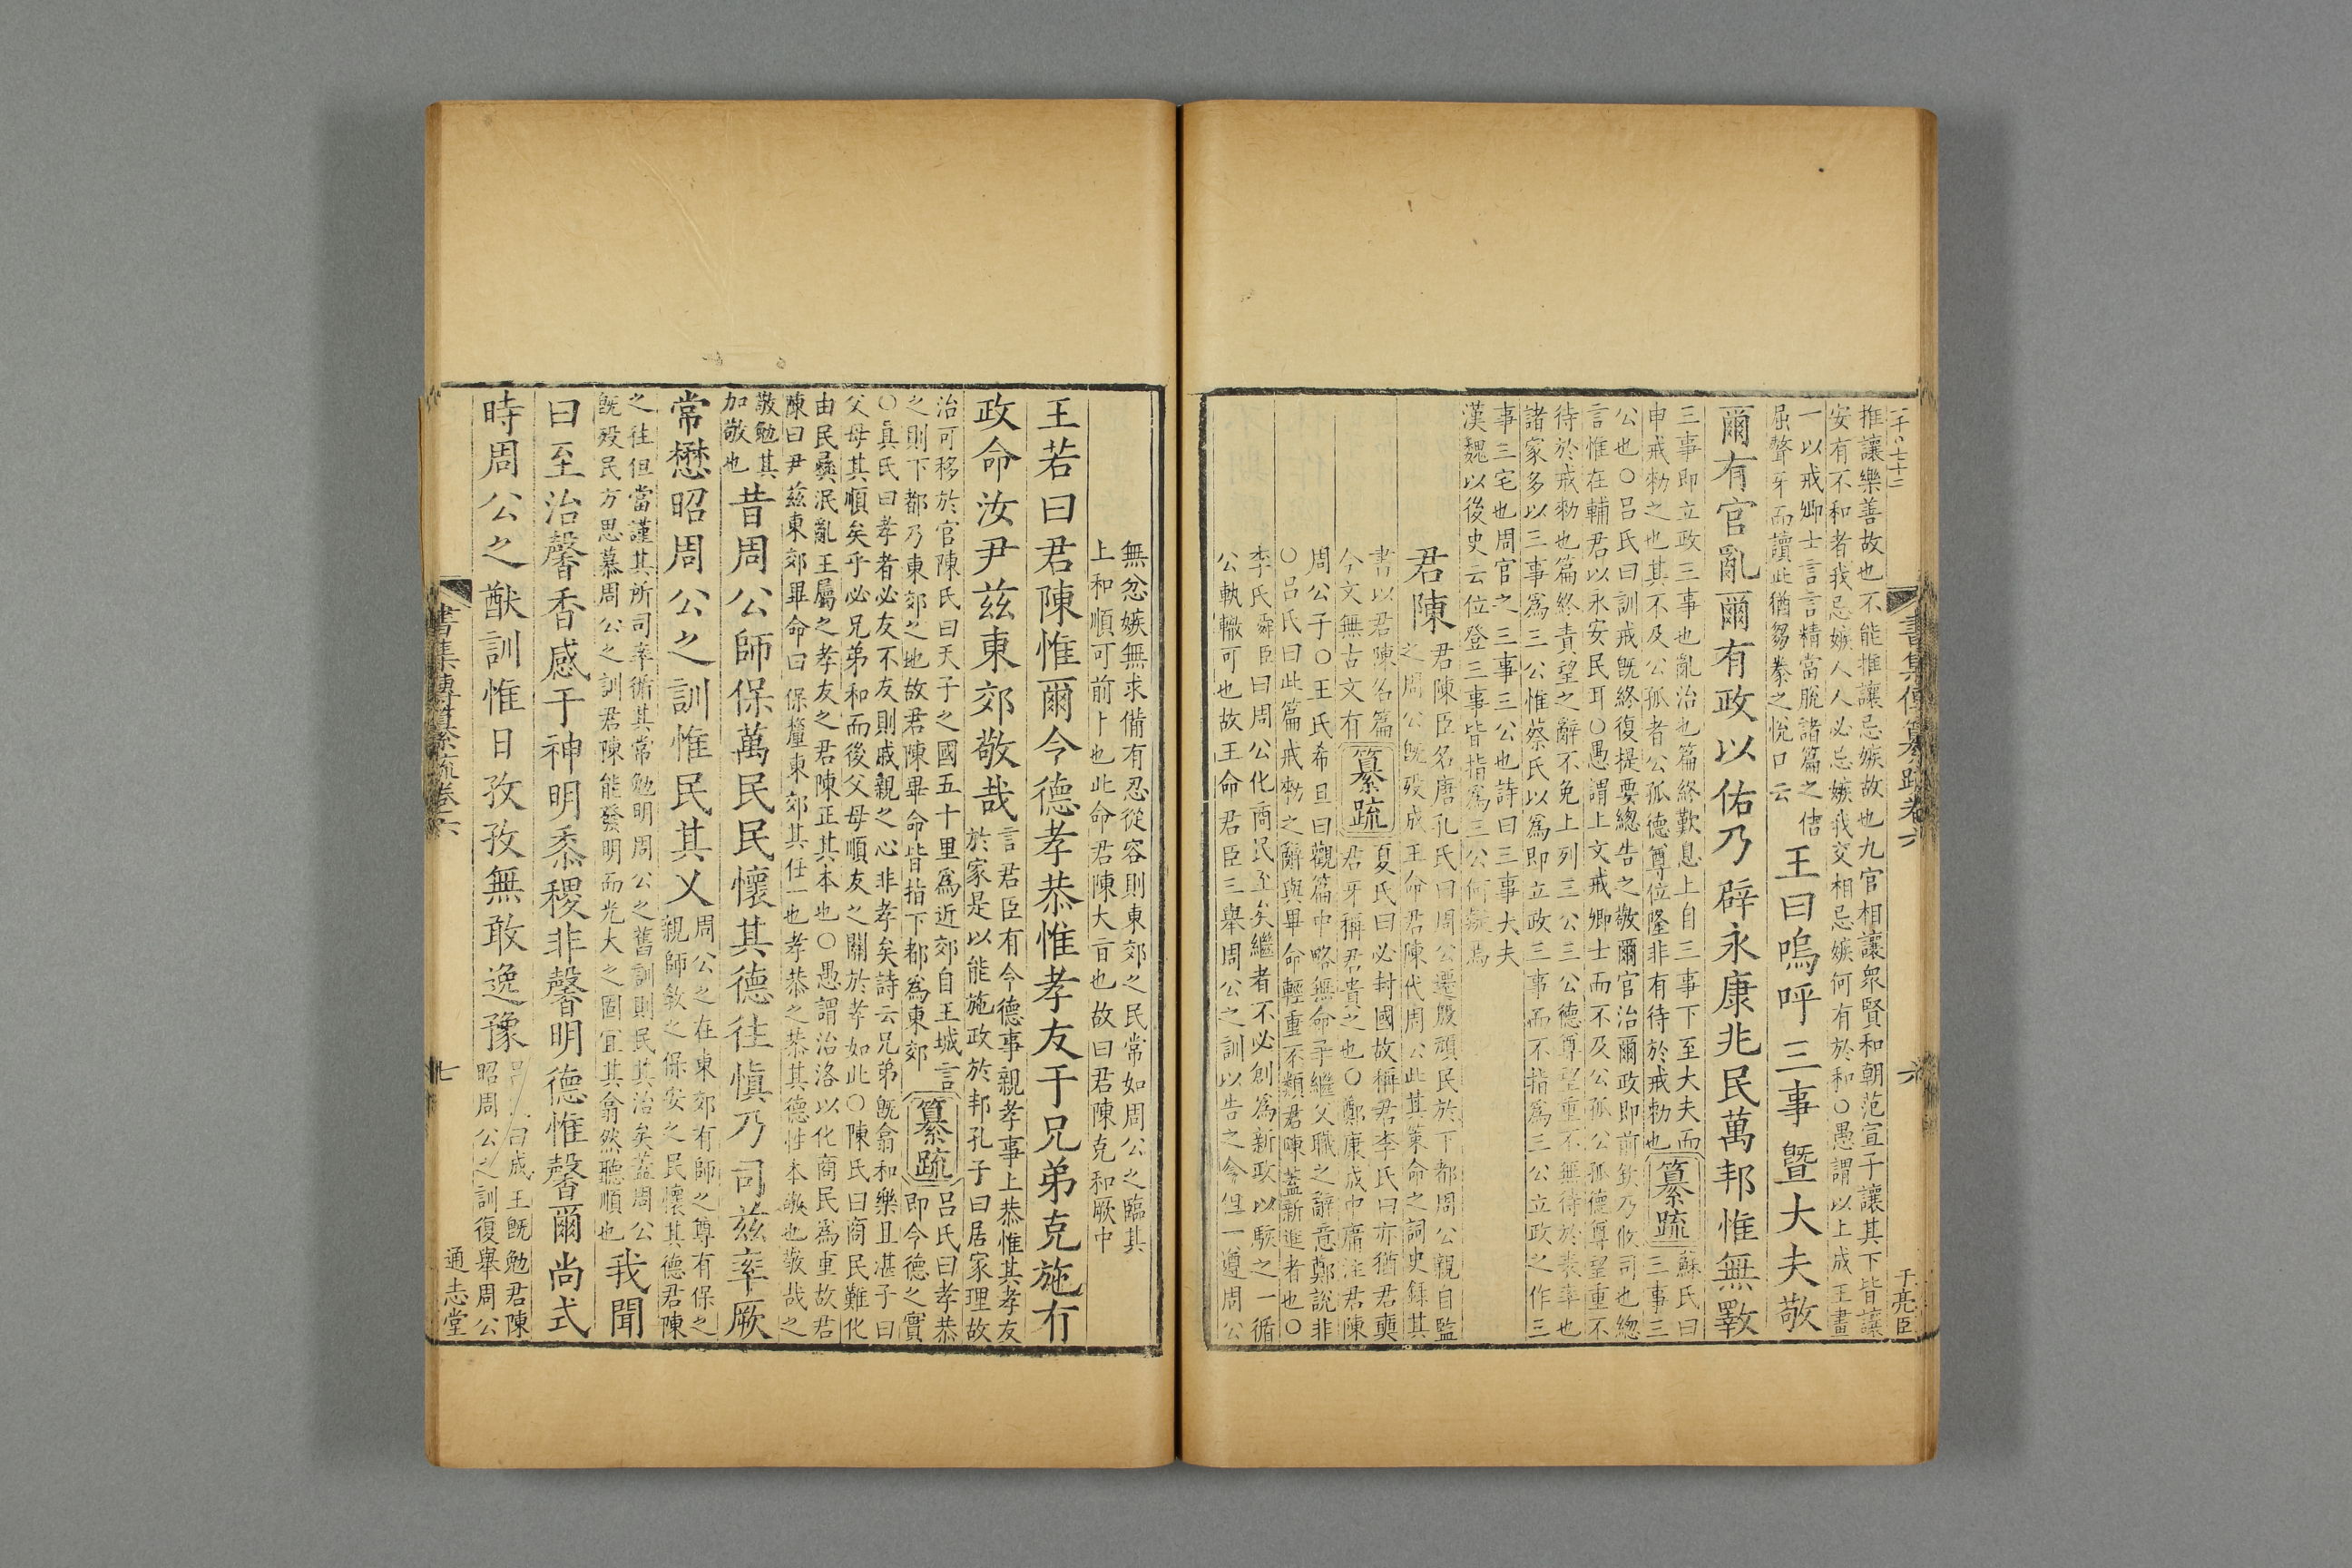 推讓樂善故也不能推讓忌嫉故也九官相讓衆賢和朝范宣子讓其下皆讓
安有不和者我忌嫉人人必忌嫉我交相忌嫉何有於和○愚謂以上成王書
一以戒卿士言言精當脫諸篇之佶
屈聱牙而讀此猶芻豢之悅口云
王曰嗚呼三事曁大夫敬
爾有官亂爾有政以佑乃辟永康兆民萬邦惟無斁
三事即立政三事也亂治也篇終歎息上自三事下至大夫而
申戒勑之也其不及公孤者公孤德尊位隆非有待於戒勑也
纂疏
蘇氏曰
三事三
公也○呂氏曰訓戒旣終復提要總告之敬爾官治爾政即前欽乃攸司也總
言惟在輔君以永安民耳○愚謂上文戒卿士而不及公孤公孤德尊望重不
待於戒勑也篇終責望之辭不免上列三公三公德尊望重不無待於表率也
諸家多以三事爲三公惟蔡氏以爲即立政三事而不指爲三公立政之作三
事三宅也周官之三事三公也詩曰三事大夫
漢魏以後史云位登三事皆指爲三公何疑焉
君陳
君陳臣名唐孔氏曰周公遷殷頑民於下都周公親自監
之周公旣歿成王命君陳代周公此其策命之詞史錄其
書以君陳名篇
今文無古文有
纂疏
夏氏曰必封國故稱君李氏曰亦猶君奭
君牙稱君貴之也○鄭康成中庸注君陳
周公子○王氏希旦曰觀篇中略無命子繼父職之辭意鄭說非
○呂氏曰此篇戒勑之辭與畢命輕重不類君陳蓋新進者也○
李氏舜臣曰周公化商民至矣繼者不必創爲新政以駭之一循
公軌轍可也故王命君臣三舉周公之訓以告之今但一遵周公
書集傳纂疏卷六
六
于亮臣
無忿嫉無求備有忍從容則東郊之民常如周公之臨其
上和順可前卜也此命君陳大㫖也故曰君陳克和厥中
王若曰君陳惟爾令德孝恭惟孝友于兄弟克施有
政命汝尹茲東郊敬哉
言君臣有令德事親孝事上恭惟其孝友
於家是以能施政於邦孔子曰居家理故
治可移於官陳氏曰天子之國五十里爲近郊自王城言
之則下都乃東郊之地故君陳畢命皆指下都爲東郊
纂疏
呂氏曰孝恭
即令德之實
○眞氏曰孝者必友不友則戚親之心非孝矣詩云兄弟旣翕和樂且湛子曰
父母其順矣乎必兄弟和而後父母順友之關於孝如此○陳氏曰商民難化
由民彞泯亂王屬之孝友之君陳正其本也○愚謂治洛以化商民爲重故君
陳曰尹茲東郊畢命曰保釐東郊其任一也孝恭之恭其德性本敬也敬哉之
敬勉其
加敬也
昔周公師保萬民民懷其德往愼乃司茲率厥
常懋昭周公之訓惟民其乂
周公之在東郊有師之尊有保之
親師敎之保安之民懷其德君陳
之往但當謹其所司率循其常勉明周公之舊訓則民其治矣蓋周公
旣歿民方思慕周公之訓君陳能發明而光大之固宜其翕然聽順也
我聞
曰至治馨香感于神明黍稷非馨明德惟馨爾尚式
時周公之猷訓惟日孜孜無敢逸豫
呂氏曰成王旣勉君陳
昭周公之訓復舉周公
書集傳纂疏卷六
七
通志堂